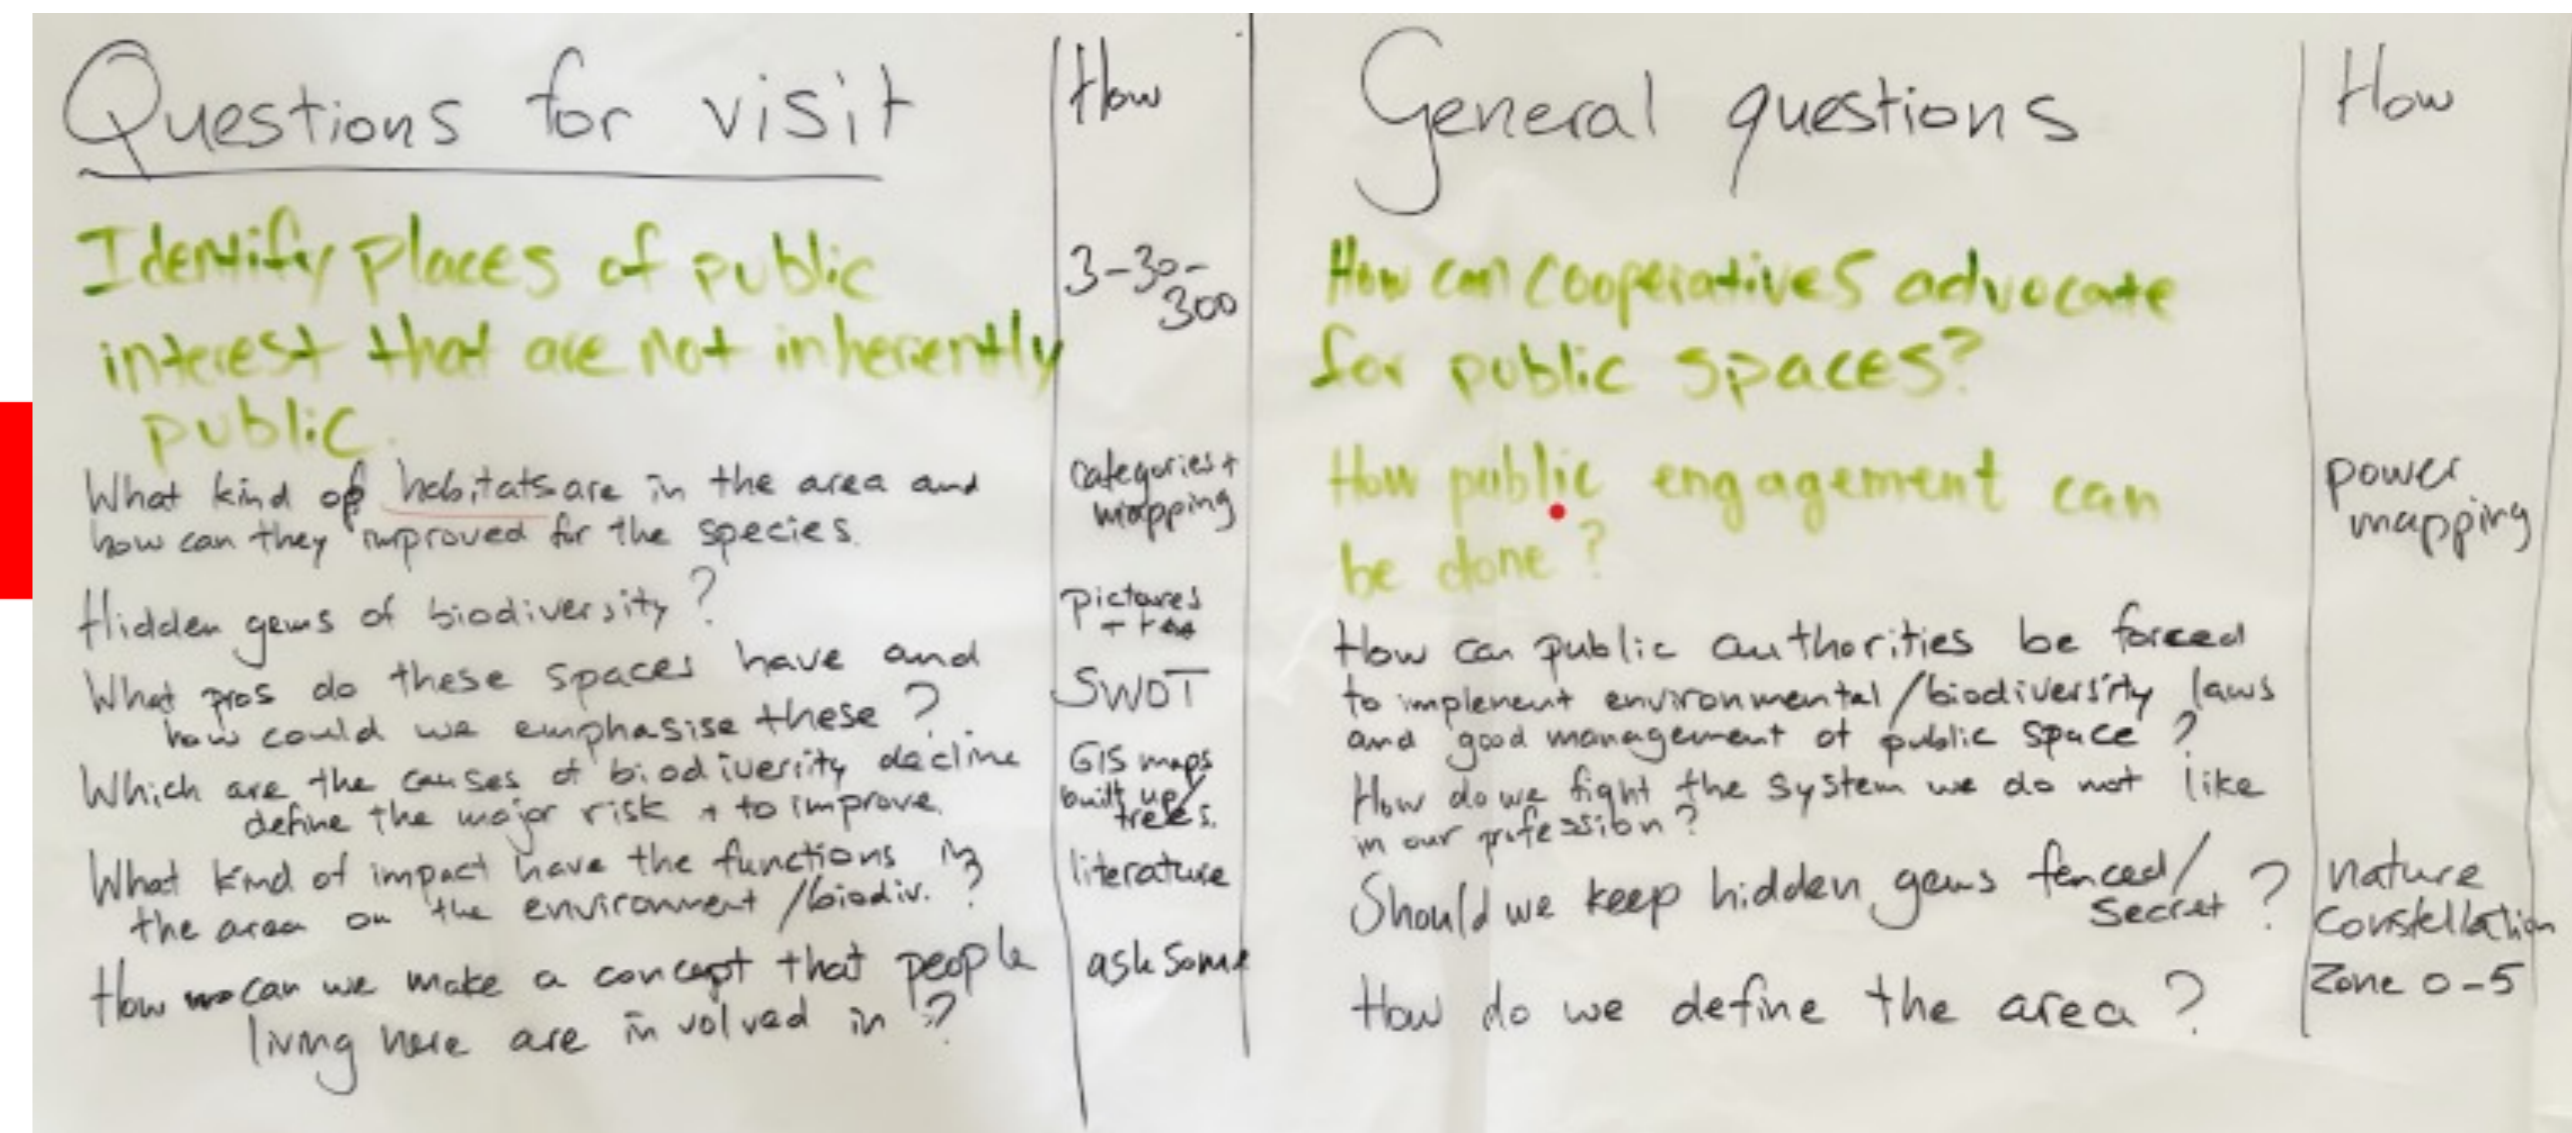 Questions for visit
Identify places of public
interest that are not inherently
public.
What kind of habitats are in the area and
how can they improved for the species.
Hidden gems of biodiversity?
What pros do these spaces have and
how could we emphasise these?
Which are the causes of biodiversity decline
define the major risk + to improve.
What kind of impact have the functions in
the area on the environment/biodiv.?
How can we make a concept that people
living here are involved in?
How
3-30-
300
categories+
mapping
pictures
SWOT
GIS maps
built up/
trees.
literature
ask some
General questions
How can cooperatives advocate
for public spaces?
How public engagement can
be done?
How can public authorities be forced
to implement environmental/biodiversity laws
and good management of public space?
How do we fight the system we do not like
in our profession?
Should we keep hidden gems fenced/
secret?
How do we define the area?
How
power
mapping
nature
constellation
Zone 0-5